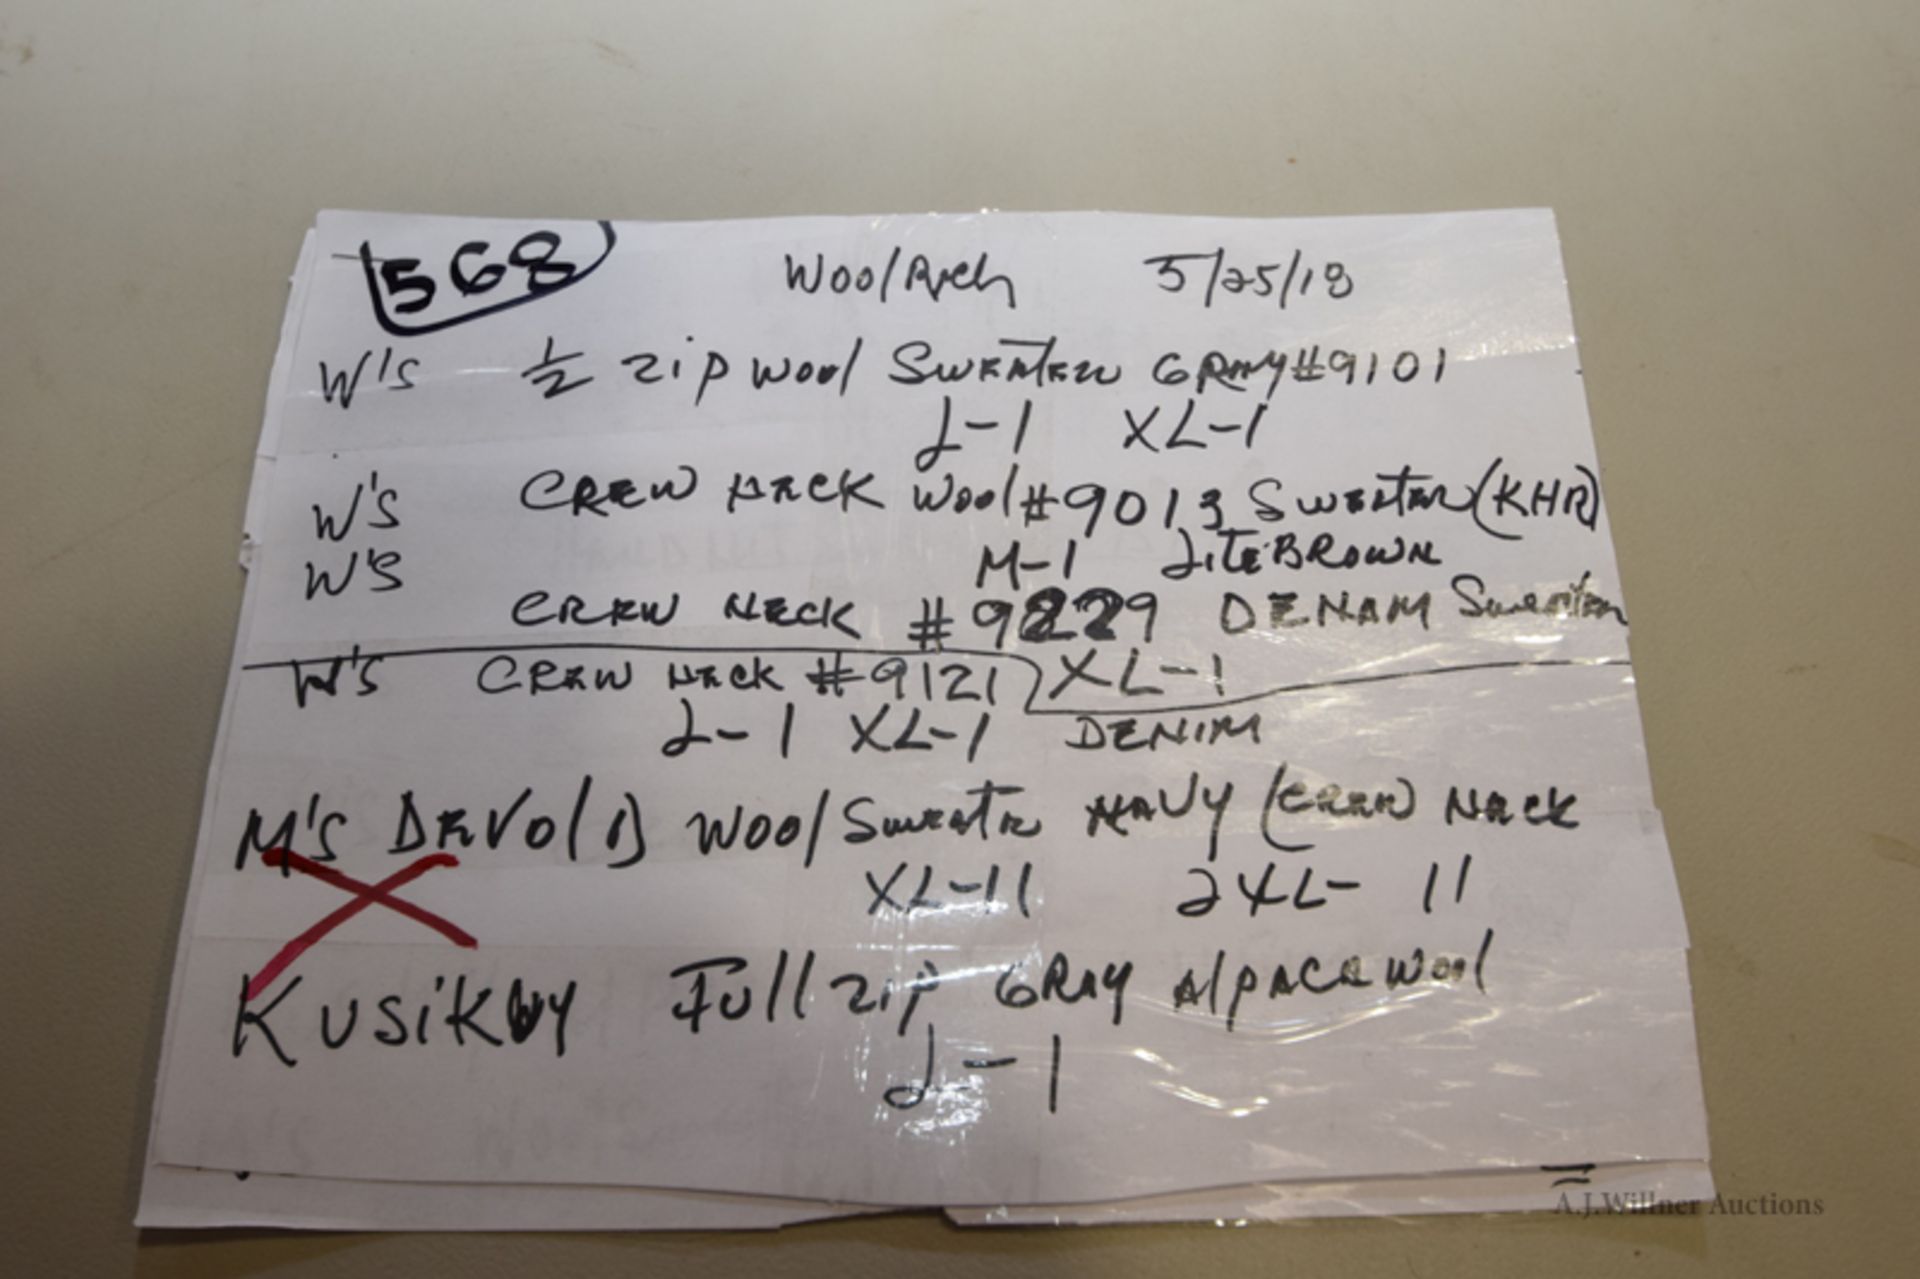 568 WoolRich 5/25/18
W's 1/2 zip wool Sweater GRAY #9101
L-1 XL-1
W's CREW NECK Wool #9013 Sweater (KHR)
W's M-1 LiteBROWN
CREW NECK #9229 DENAM Sweater
W's CREW NECK #9121 XL-1
L-1 XL-1 DENIM
M's DEVOlD Wool Sweater NAVY (CREW NECK
XL-11 2XL-11
KUSiKUY Full zip GRAY AlpACA Wool
L-1
A.J.Willner Auctions